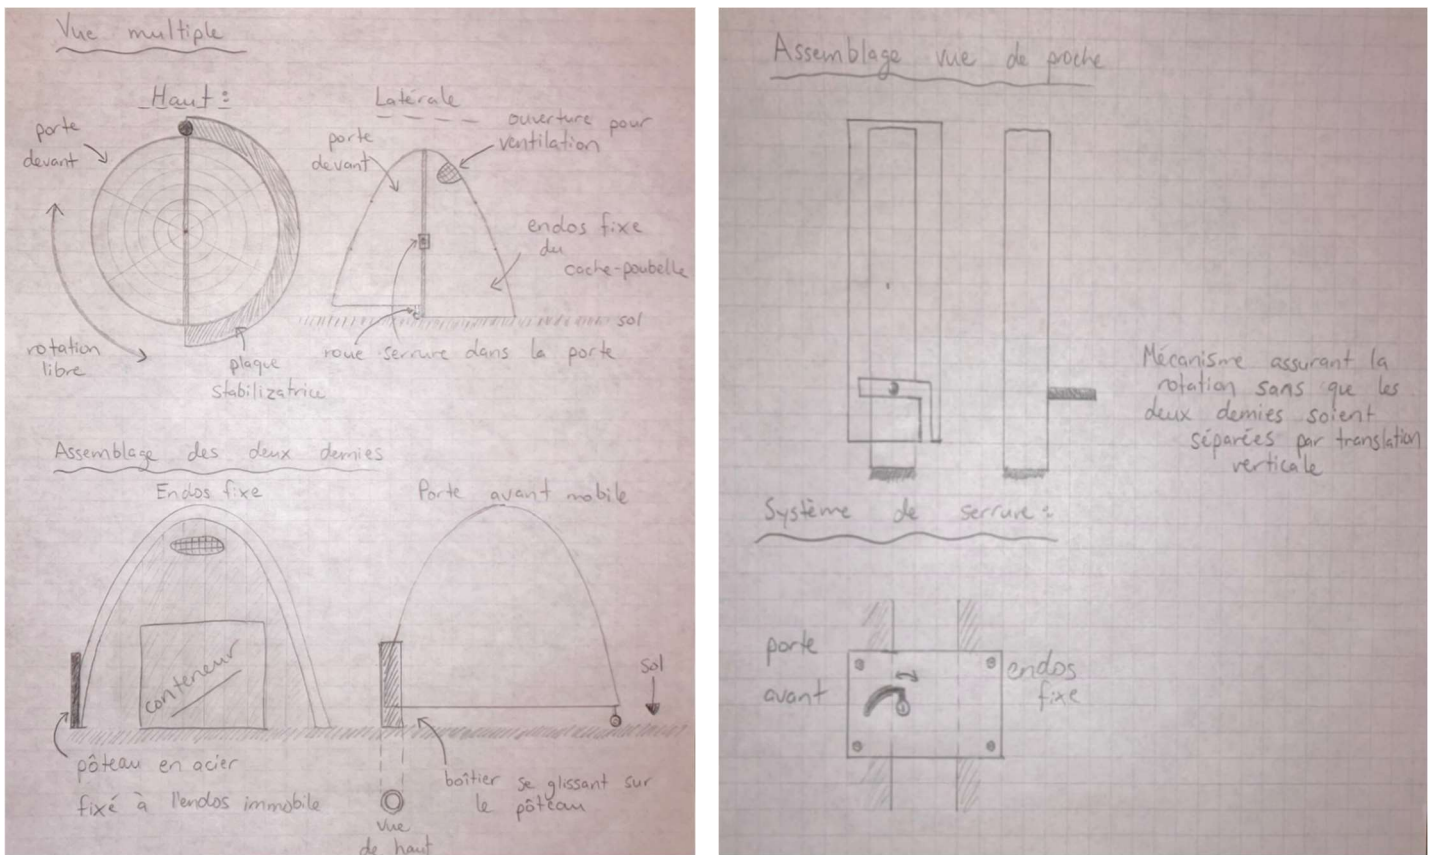 Vue multiple
Haut :
porte
devant
rotation
libre
plaque
stabilizatrice
Latérale
porte
devant
ouverture pour
ventilation
endos fixe
du
cache-poubelle
sol
roue serrure dans la porte
Assemblage des deux demies
Endos fixe
conteneur
pôteau en acier
fixé à l'endos immobile
Porte avant mobile
sol
boîtier se glissant sur
le pôteau
vue
de haut
Assemblage vue de proche
Mécanisme assurant la
rotation sans que les
deux demies soient
séparées par translation
verticale
Système de serrure :
porte
avant
endos
fixe